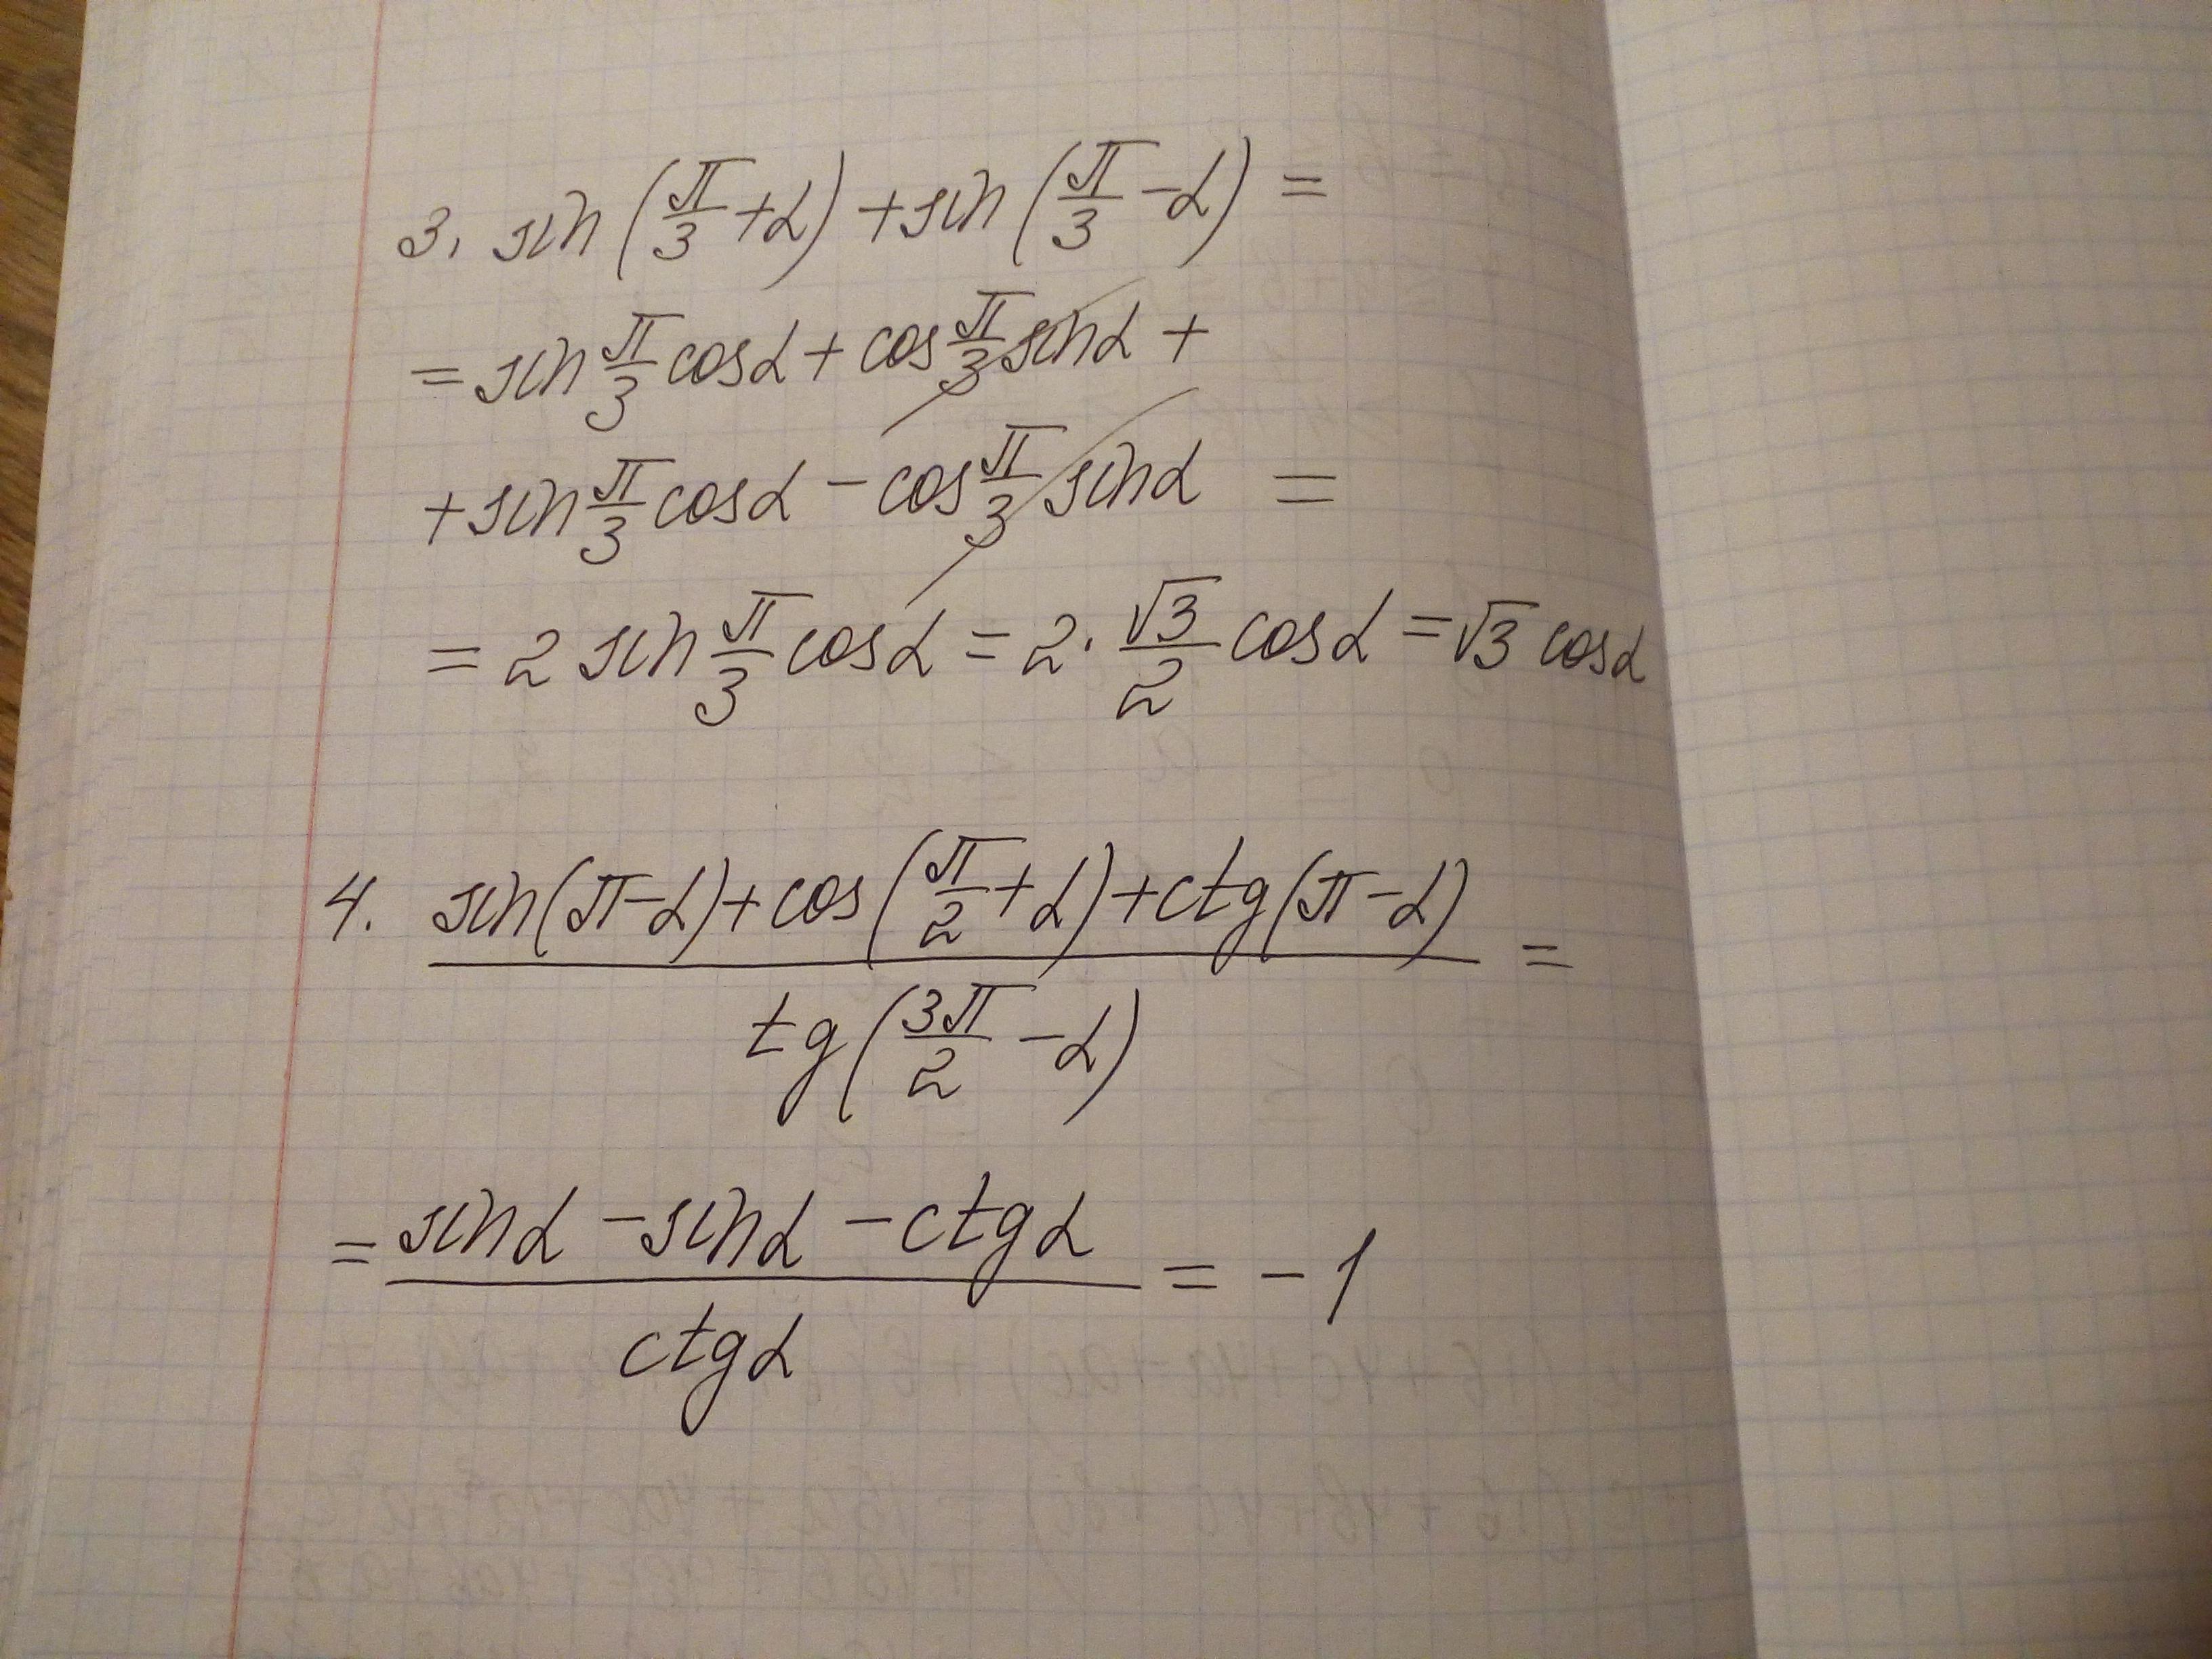 3. sin(π/3+α)+sin(π/3-α)=
=sin π/3 cosα+cos π/3 sinα+
+sin π/3 cosα-cos π/3 sinα=
=2 sin π/3 cosα=2·√3/2 cosα=√3 cosα
4. (sin(π-α)+cos(π/2+α)+ctg(π-α))/(tg(3π/2-α))=
=(sinα-sinα-ctgα)/(ctgα)=-1